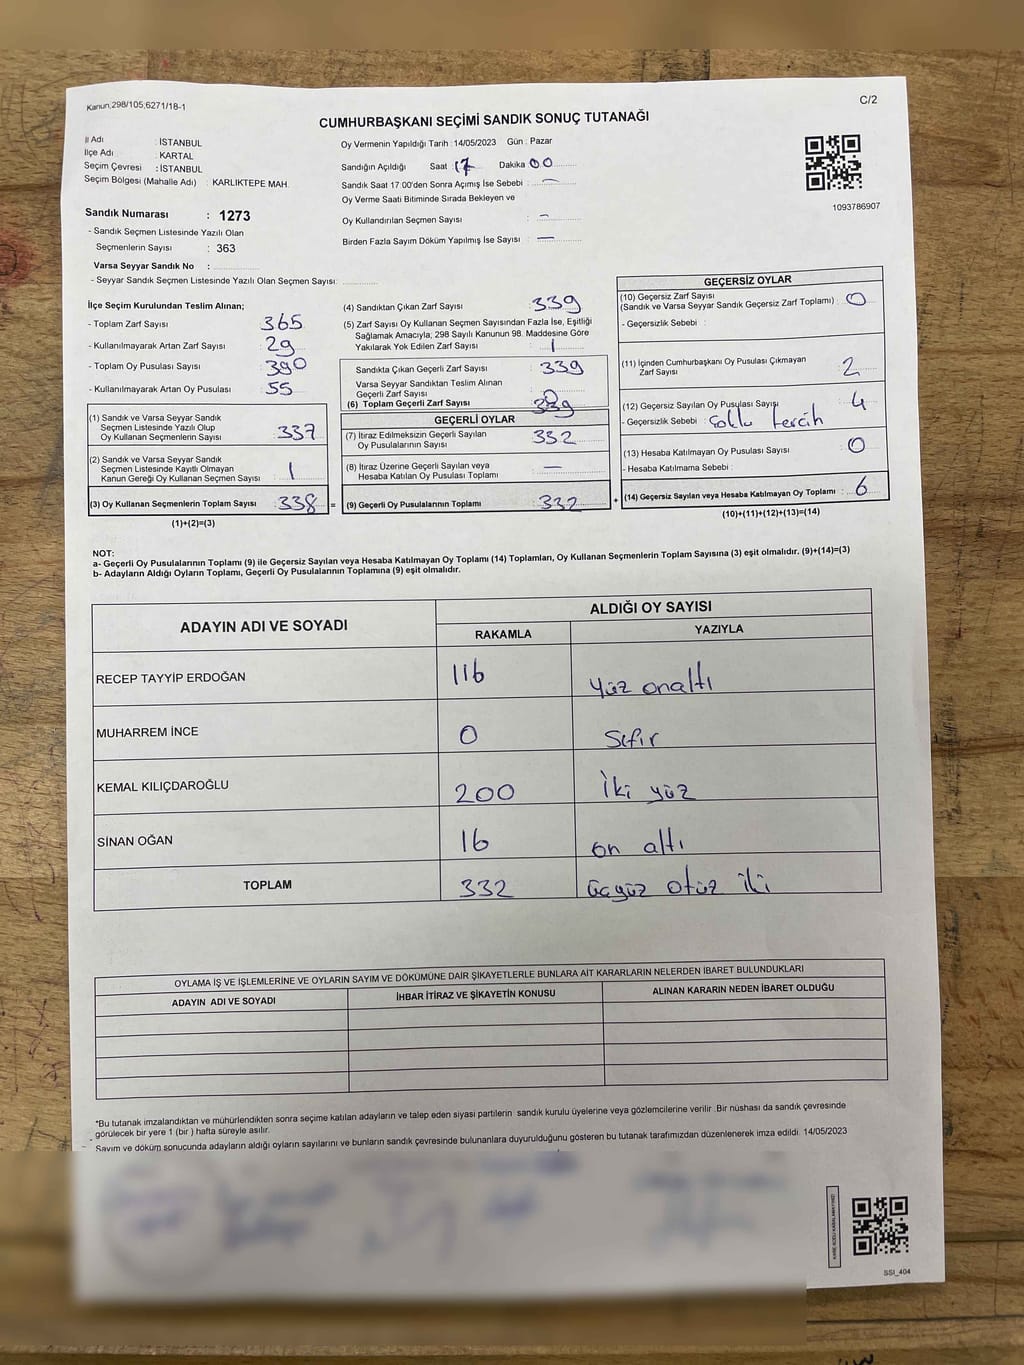 Kanun,298/105;6271/18-1
C/2
CUMHURBAŞKANI SEÇİMİ SANDIK SONUÇ TUTANAĞI
İl Adı : İSTANBUL
İlçe Adı : KARTAL
Seçim Çevresi : İSTANBUL
Seçim Bölgesi (Mahalle Adı) : KARLIKTEPE MAH.
Sandık Numarası : 1273
- Sandık Seçmen Listesinde Yazılı Olan
Seçmenlerin Sayısı : 363
Varsa Seyyar Sandık No :
- Seyyar Sandık Seçmen Listesinde Yazılı Olan Seçmen Sayısı:
Oy Vermenin Yapıldığı Tarih : 14/05/2023 Gün : Pazar
Sandığın Açıldığı Saat 17 Dakika 00
Sandık Saat 17:00'den Sonra Açımış İse Sebebi : —
Oy Verme Saati Bitiminde Sırada Bekleyen ve
Oy Kullandırılan Seçmen Sayısı : —
Birden Fazla Sayım Döküm Yapılmış İse Sayısı : —
1093786907
İlçe Seçim Kurulundan Teslim Alınan;
- Toplam Zarf Sayısı : 365
- Kullanılmayarak Artan Zarf Sayısı : 29
- Toplam Oy Pusulası Sayısı : 390
- Kullanılmayarak Artan Oy Pusulası : 55
(1) Sandık ve Varsa Seyyar Sandık
Seçmen Listesinde Yazılı Olup
Oy Kullanan Seçmenlerin Sayısı : 337
(2) Sandık ve Varsa Seyyar Sandık
Seçmen Listesinde Kayıtlı Olmayan
Kanun Gereği Oy Kullanan Seçmen Sayısı : 1
(3) Oy Kullanan Seçmenlerin Toplam Sayısı : 338 =
(1)+(2)=(3)
(4) Sandıktan Çıkan Zarf Sayısı : 339
(5) Zarf Sayısı Oy Kullanan Seçmen Sayısından Fazla İse, Eşitliği
Sağlamak Amacıyla; 298 Sayılı Kanunun 98. Maddesine Göre
Yakılarak Yok Edilen Zarf Sayısı : 1
Sandıkta Çıkan Geçerli Zarf Sayısı : 339
Varsa Seyyar Sandıktan Teslim Alınan
Geçerli Zarf Sayısı : 0
(6) Toplam Geçerli Zarf Sayısı : 339
GEÇERLİ OYLAR
(7) İtiraz Edilmeksizin Geçerli Sayılan
Oy Pusulalarının Sayısı : 332
(8) İtiraz Üzerine Geçerli Sayılan veya
Hesaba Katılan Oy Pusulası Toplamı : —
(9) Geçerli Oy Pusulalarının Toplamı : 332 +
GEÇERSİZ OYLAR
(10) Geçersiz Zarf Sayısı
(Sandık ve Varsa Seyyar Sandık Geçersiz Zarf Toplamı) : 0
- Geçersizlik Sebebi :
(11) İçinden Cumhurbaşkanı Oy Pusulası Çıkmayan
Zarf Sayısı : 2
(12) Geçersiz Sayılan Oy Pusulası Sayısı : 4
- Geçersizlik Sebebi : Çoklu tercih
(13) Hesaba Katılmayan Oy Pusulası Sayısı : 0
- Hesaba Katılmama Sebebi :
(14) Geçersiz Sayılan veya Hesaba Katılmayan Oy Toplamı : 6
(10)+(11)+(12)+(13)=(14)
NOT:
a- Geçerli Oy Pusulalarının Toplamı (9) ile Geçersiz Sayılan veya Hesaba Katılmayan Oy Toplamı (14) Toplamları, Oy Kullanan Seçmenlerin Toplam Sayısına (3) eşit olmalıdır. (9)+(14)=(3)
b- Adayların Aldığı Oyların Toplamı, Geçerli Oy Pusulalarının Toplamına (9) eşit olmalıdır.
ADAYIN ADI VE SOYADI
ALDIĞI OY SAYISI
RAKAMLA YAZIYLA
RECEP TAYYİP ERDOĞAN 116 yüz onaltı
MUHARREM İNCE 0 Sıfır
KEMAL KILIÇDAROĞLU 200 İki yüz
SİNAN OĞAN 16 on altı
TOPLAM 332 üçyüz otuz iki
OYLAMA İŞ VE İŞLEMLERİNE VE OYLARIN SAYIM VE DÖKÜMÜNE DAİR ŞİKAYETLERLE BUNLARA AİT KARARLARIN NELERDEN İBARET BULUNDUKLARI
ADAYIN ADI VE SOYADI İHBAR İTİRAZ VE ŞİKAYETİN KONUSU ALINAN KARARIN NEDEN İBARET OLDUĞU
*Bu tutanak imzalandıktan ve mühürlendikten sonra seçime katılan adayların ve talep eden siyasi partilerin sandık kurulu üyelerine veya gözlemcilerine verilir .Bir nüshası da sandık çevresinde
görülecek bir yere 1 (bir ) hafta süreyle asılır.
Sayım ve döküm sonucunda adayların aldığı oyların sayılarını ve bunların sandık çevresinde bulunanlara duyurulduğunu gösteren bu tutanak tarafımızdan düzenlenerek imza edildi. 14/05/2023
SSI_404